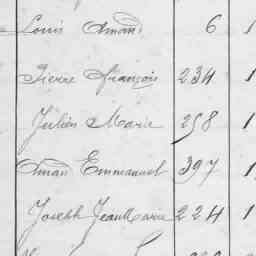 Louis Amand 6 1
Pierre François 234 1
Julien Marie 258 1
Amand Emmanuel 397 1
Joseph Jean Marie 224 1